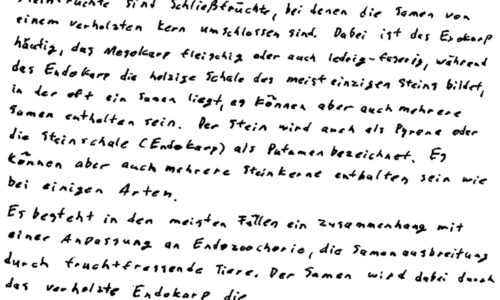 Steinfrüchte sind Schließfrüchte, bei denen die Samen von
einem verholzten Kern umschlossen sind. Dabei ist das Exokarp
häutig, das Mesokarp fleischig oder auch ledrig-faserig, während
das Endokarp die holzige Schale des meist einzigen Steins bildet,
in der oft ein Samen liegt, es können aber auch mehrere
Samen enthalten sein. Der Stein wird auch als Pyrene oder
die Steinschale (Endokarp) als Putamen bezeichnet. Es
können aber auch mehrere Steinkerne enthalten sein wie
bei einigen Arten.
Es besteht in den meisten Fällen ein Zusammenhang mit
einer Anpassung an Endozoochorie, die Samenausbreitung
durch fruchtfressende Tiere. Der Samen wird dabei durch
das verholzte Endokarp die